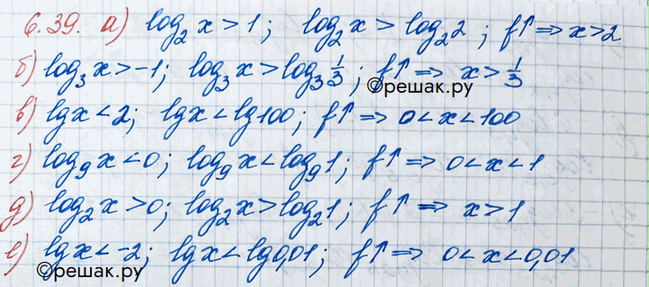 6.39. а) log₂x>1; log₂x>log₂2; f↑⇒x>2
б) log₃x>-1; log₃x>log₃⅓; f↑⇒ x>⅓
©решак.ру
в) lgx<2; lgx<lg100; f↑⇒ 0<x<100
г) log₉x<0; log₉x<log₉1; f↑⇒ 0<x<1
д) log₂x>0; log₂x>log₂1; f↑⇒ x>1
е) lgx<-2; lgx<lg0,01; f↑⇒ 0<x<0,01
©решак.ру